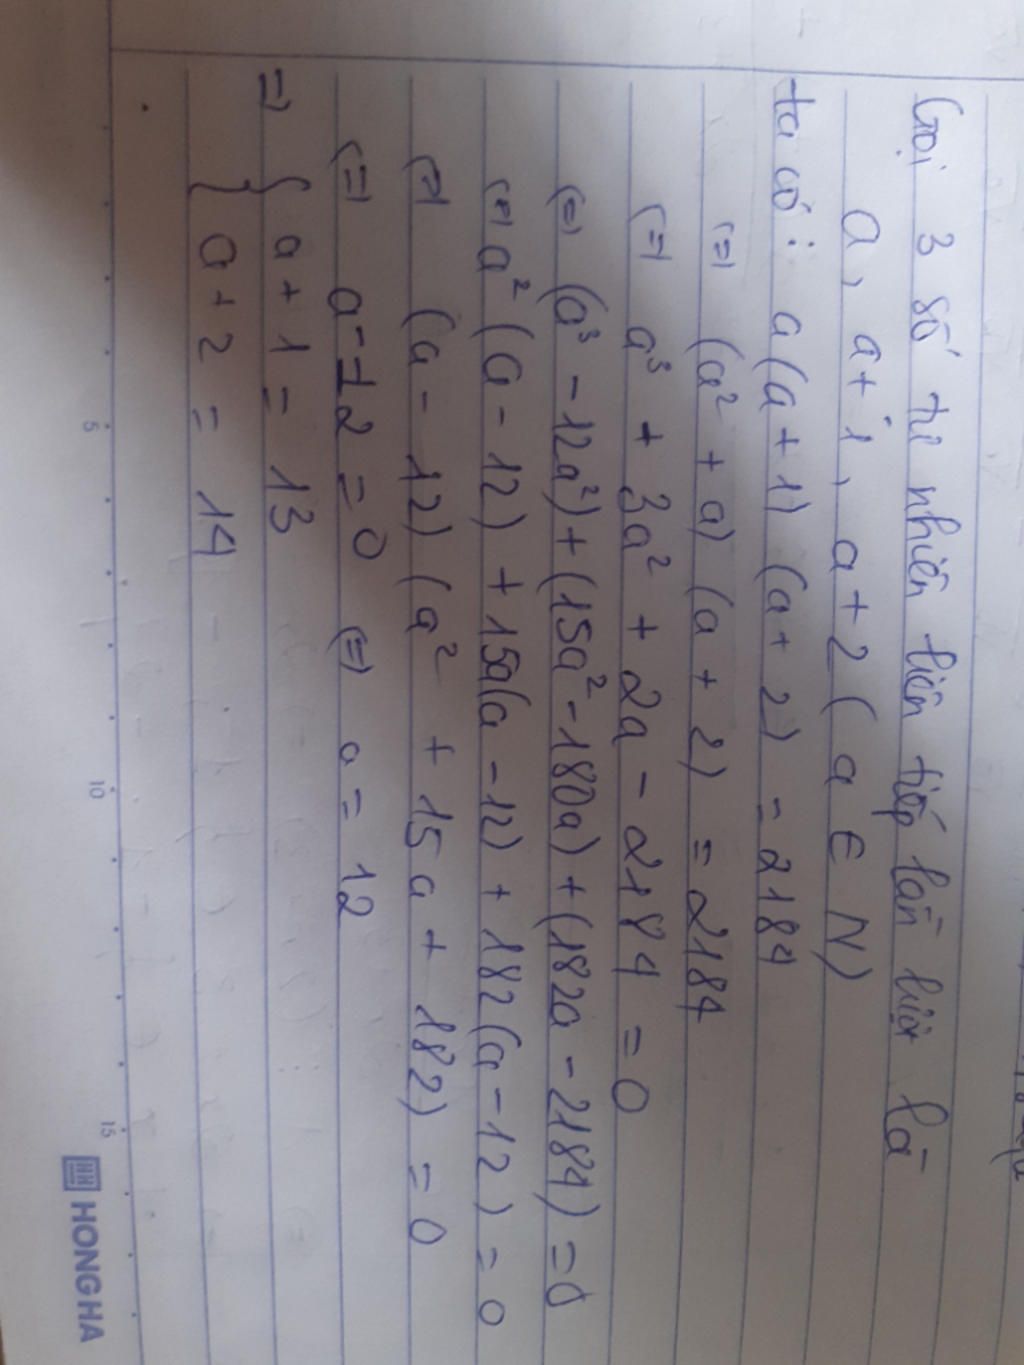 Gọi 3 số tự nhiên liên tiếp lần lượt là
a, a+1, a+2 ( a ∈ N)
ta có : a(a+1) (a+2) = 2184
(=) (a² + a) (a + 2) = 2184
(=) a³ + 3a² + 2a - 2184 = 0
(=) (a³ - 12a²) + (15a² - 180a) + (182a - 2184) = 0
(=) a² (a - 12) + 15a(a - 12) + 182(a - 12) = 0
(=) (a - 12) (a² + 15a + 182) = 0
(=) a - 12 = 0 (=) a = 12
=) { a + 1 = 13
a + 2 = 14
5 10 15
HONG HA